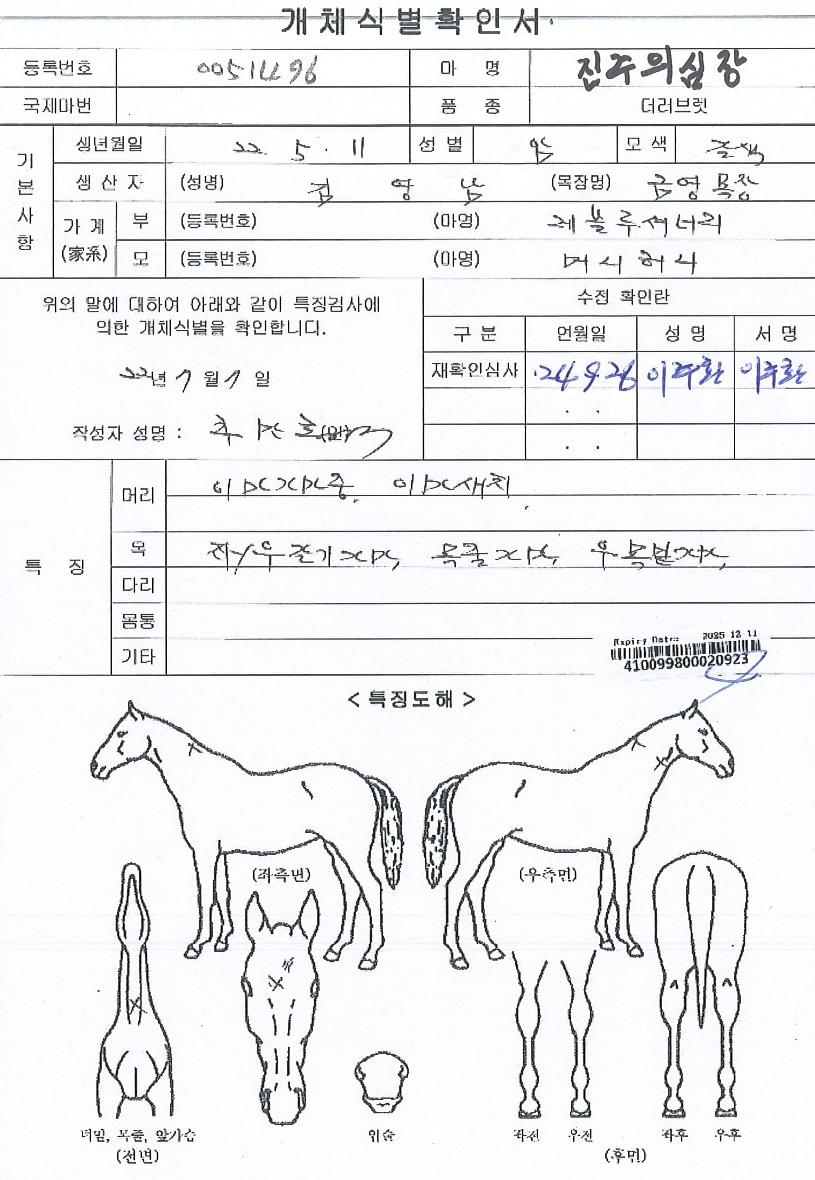 개체식별확인서
등록번호 0051496 마 명 진주의심장
국제마번 품 종 더러브렛
기본사항
생년월일 22. 5. 11 성 별 암 모 색 갈색
생 산 자 (성명) 김 영 남 (목장명) 금영목장
가 계 (家系) 부 (등록번호) (마명)
모 (등록번호) (마명) 머시허시
위의 말에 대하여 아래와 같이 특징검사에
의한 개체식별을 확인합니다.
22년 7 월 7 일
작성자 성명 :
수정 확인란
구 분 언월일 성 명 서 명
재확인심사 .24 9.26 이주환 이주환
. .
. .
특 징
머리
목
다리
몸통
기타
Expiry Date: 2025 12 11
410099800020923
< 특징도해 >
(좌측면) (우측면)
턱밑, 목줄, 앞가슴 입술 좌전 우전 좌후 우후
(전면) (후면)